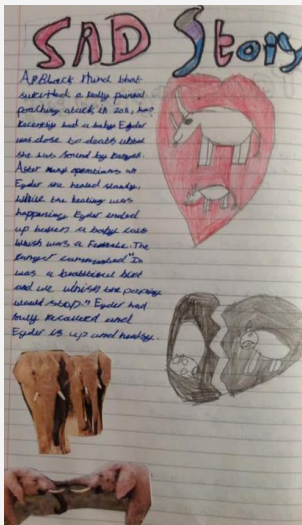 SAD Story
A Black rhino that
survived a poaching attack in 2015, has
recently had a baby Eyder
was close to death when
she was found by rangers.
After many operations on
Eyder she healed slowly,
while the healing was
happening Eyder ended
up haven a baby calf
which was a Female. The
ranger commented "It
was a beatiful
and we whish the poaching
would stop." Eyder had
fully recovered and
Eyder is up and healthy.